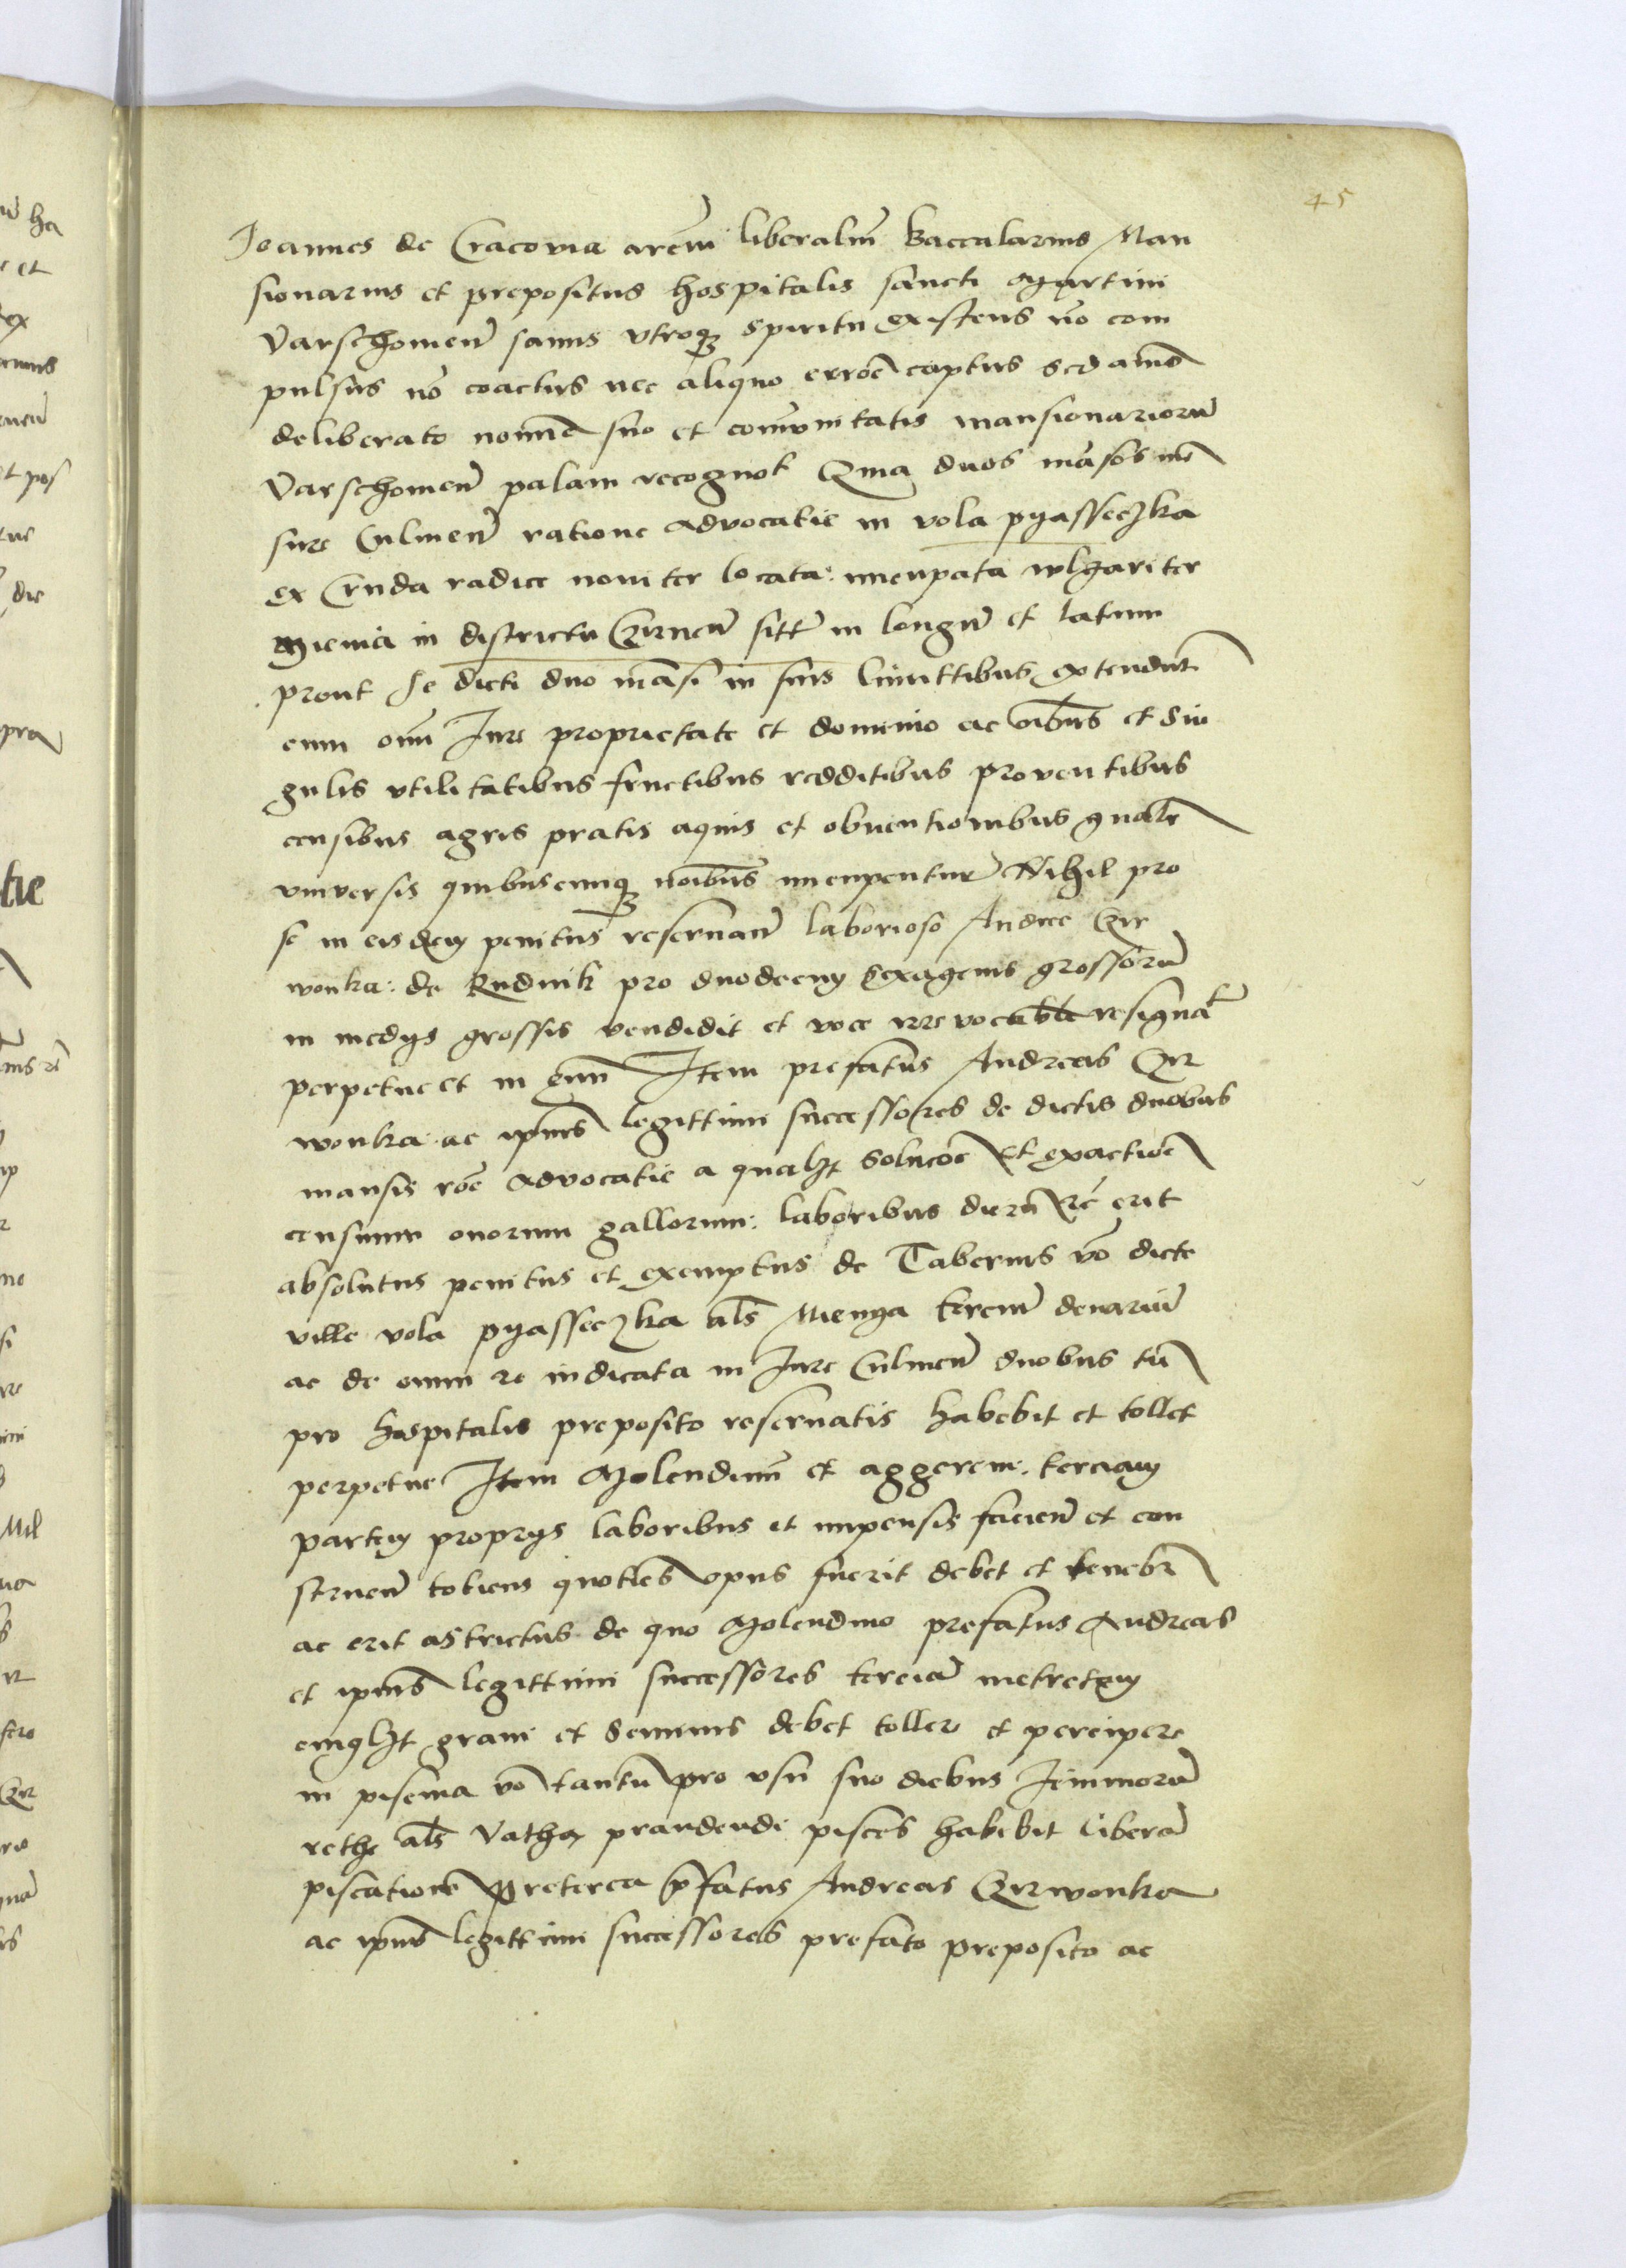 45
Joannes de Cracovia arciũ liberaliũ Baccalarius Man
sionarius et prepositus hospitalis sancti Martini
Varschoviens̃ sanus utroqʒ spiritu existens nõ com
pulsus nõ coactus nec aliquo errore captus sed animo
deliberato nomine suo et com̃unitatis mansionariorũ
Varschovieñ palam recognovit Quia duos mãsos mẽ
sure Culmeñ ratione advocatie in vola pyasseczka
ex Cruda radice noviter locata: nuncupata wlgariter
Mienia in districtu Czirneñ sitt in longũ et latum
prout se dicti duo mãsi in suis limittibus extendunt
cum omni Jure proprietate et dominio ac oĩbus et sin
gulis utilitatibus fructibus redditibus proventibus
censibus agris pratis aquis et obventionibus gñalr̃
universis quibuscumqʒ noĩbus nuncupentur Nihil pro
se in eisdem penitus reservañ laborioso Andree Czir
wonka: de Rudnik pro duodecim sexagenis grossorũ
in medys grossis vendidit et voce irrevocabili resignat
perpetue et in evũ Item prefatus Andreas Czir
wonka ac ipsius legittimi successores de dictis duobus
mansis rõne advocatie a qualʒt solucõe et exactiõe
censuum ovorum gallorum: laboribus dierũ etc̃ erit
absolutus penitus et exemptus de Tabernis vo dicte
ville vola pyasseczka als Mienya terciũ denariũ
ac de omni re iudicata in Jure Culmeñ duobus tñ
pro hospitalis preposito reservatis habebit et tollet
perpetue Item Molendinũ et aggerem: terciam
partem proprys laboribus et impensis facieñ et con
strueñ totiens quoties opus fuerit debet et tenebr̃
ac erit astrictus de quo Molendino prefatus Andreas
et ipsius legittimi successores terciã metretem
cuiuslʒt grani et seminis debet tollere et percipere
in piscina vo tantũ pro usu suo diebus Jeiuniorũ
rethe als Vatha prandendi pisces habebit liberã
piscationẽ Preterea p̃fatus Andreas Czirwonka
ac ipsius legittimi successores prefato preposito ac